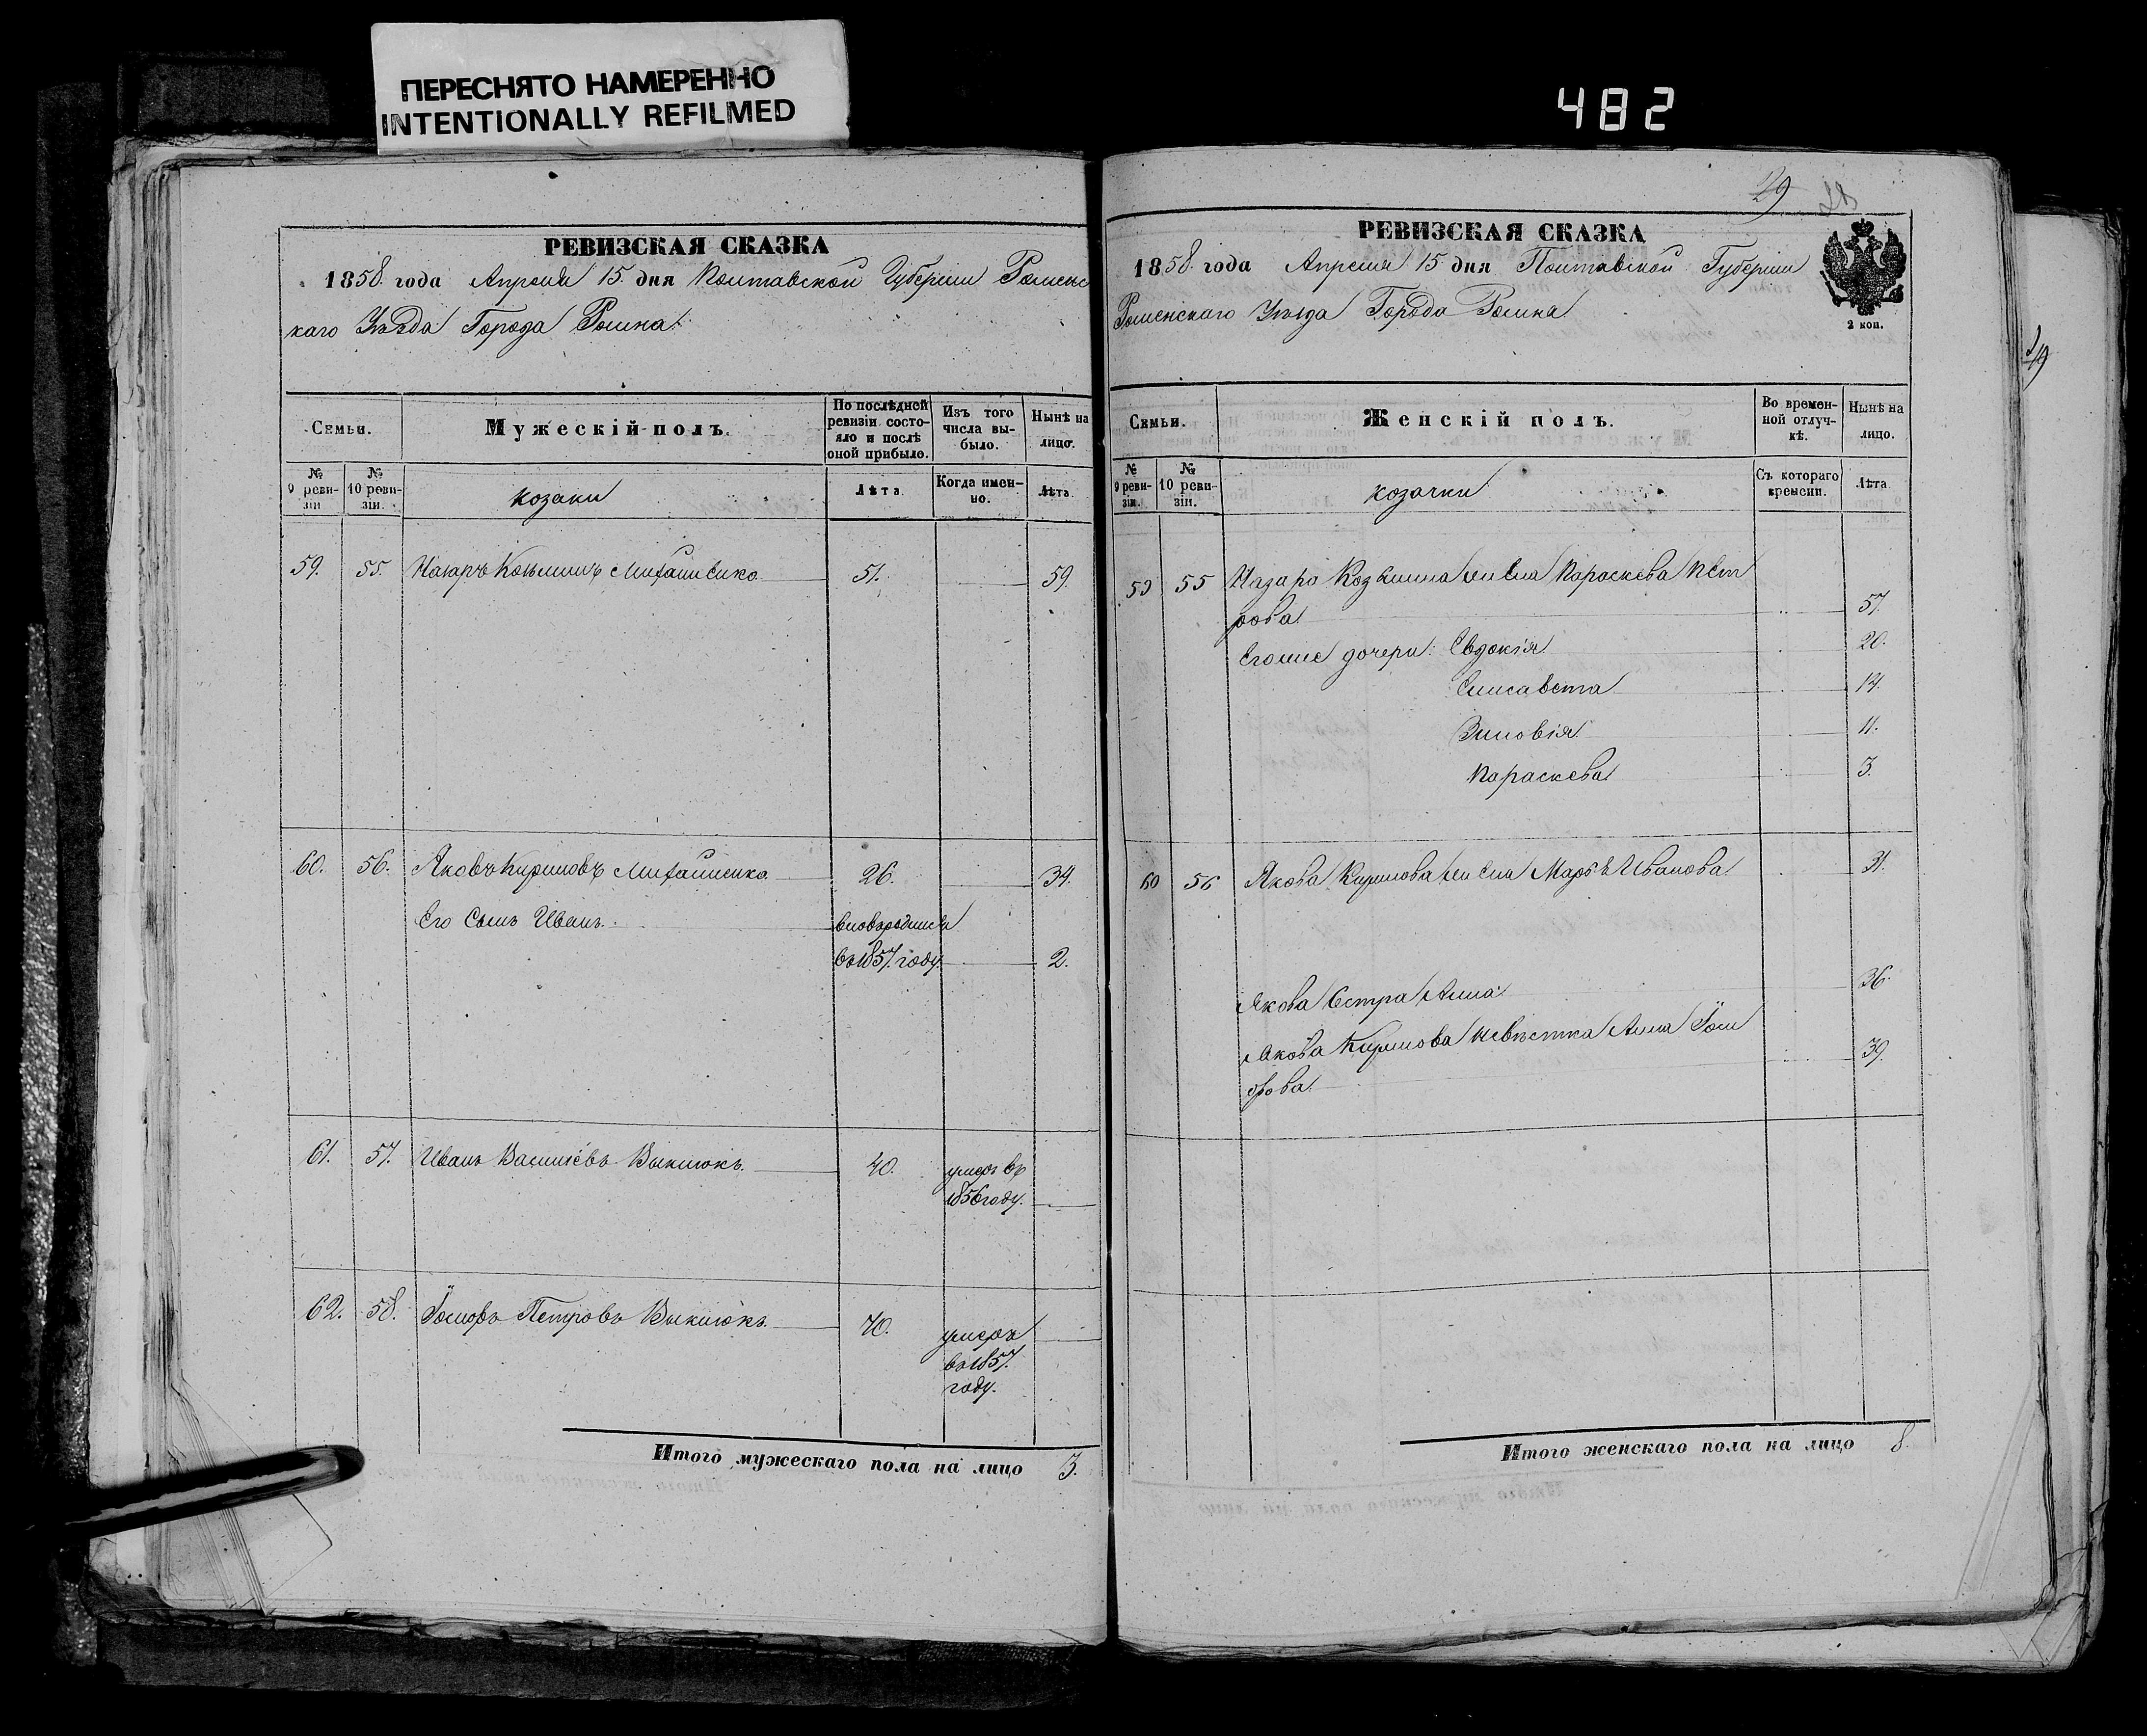 ПЕРЕСНЯТО НАМЕРЕННО
INTENTIONALLY REFILMED
482
29
РЕВИЗСКАЯ СКАЗКА
1858. года Апреля 15. дня Полтавской Губернiи Роменс
каго Уѣзда Города Ромна.
Семьи.
Мужескiй полъ.
По послѣдней ревизiи состояло и послѣ оной прибыло.
Изъ того числа выбыло.
Нынѣ на лицо.
№ 9 ревизiи
№ 10 ревизiи.
козаки
Лѣта
Когда именно.
Лѣта
59. 55. Назаръ Козьминъ Михайленко 51. 59.
60. 56. Яковъ Кириловъ Михайленко 26. 34.
Его Сынъ Иванъ. вновьродился
въ 1857. году. 2.
61. 57. Иванъ Васильевъ Выклюкъ. 40. умеръ въ
1856 году.
62. 58. Iосифъ Петровъ Выклюкъ. 40. умеръ
въ 1857.
году.
Итого мужескаго пола на лицо 3.
РЕВИЗСКАЯ СКАЗКА
1858. года Апреля 15 дня Полтавской Губернiи
Роменскаго Уѣзда Города Ромна
2 коп.
Семьи.
Женскiй полъ.
Во временной отлучкѣ.
Нынѣ на лицо.
№ 9 ревизiи.
№ 10 ревизiи.
козачки
Съ котораго времени.
Лѣта
59 55 Назара Козьмина жена Параскева Пет
рова 57.
Егоже дочери: Евдокiя 20.
Елисавета 14.
Зиновiя 11.
Параскева 3.
60 56 Якова Кирилова жена Марѳа Иванова 31.
Якова Сестра Анна 36.
Якова Кирилова невѣстка Анна Iоси
фова 39.
Итого женскаго пола на лицо 8.
29